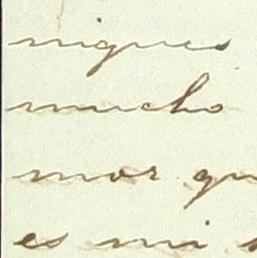 nigues
mucho
mor qu
es mi s